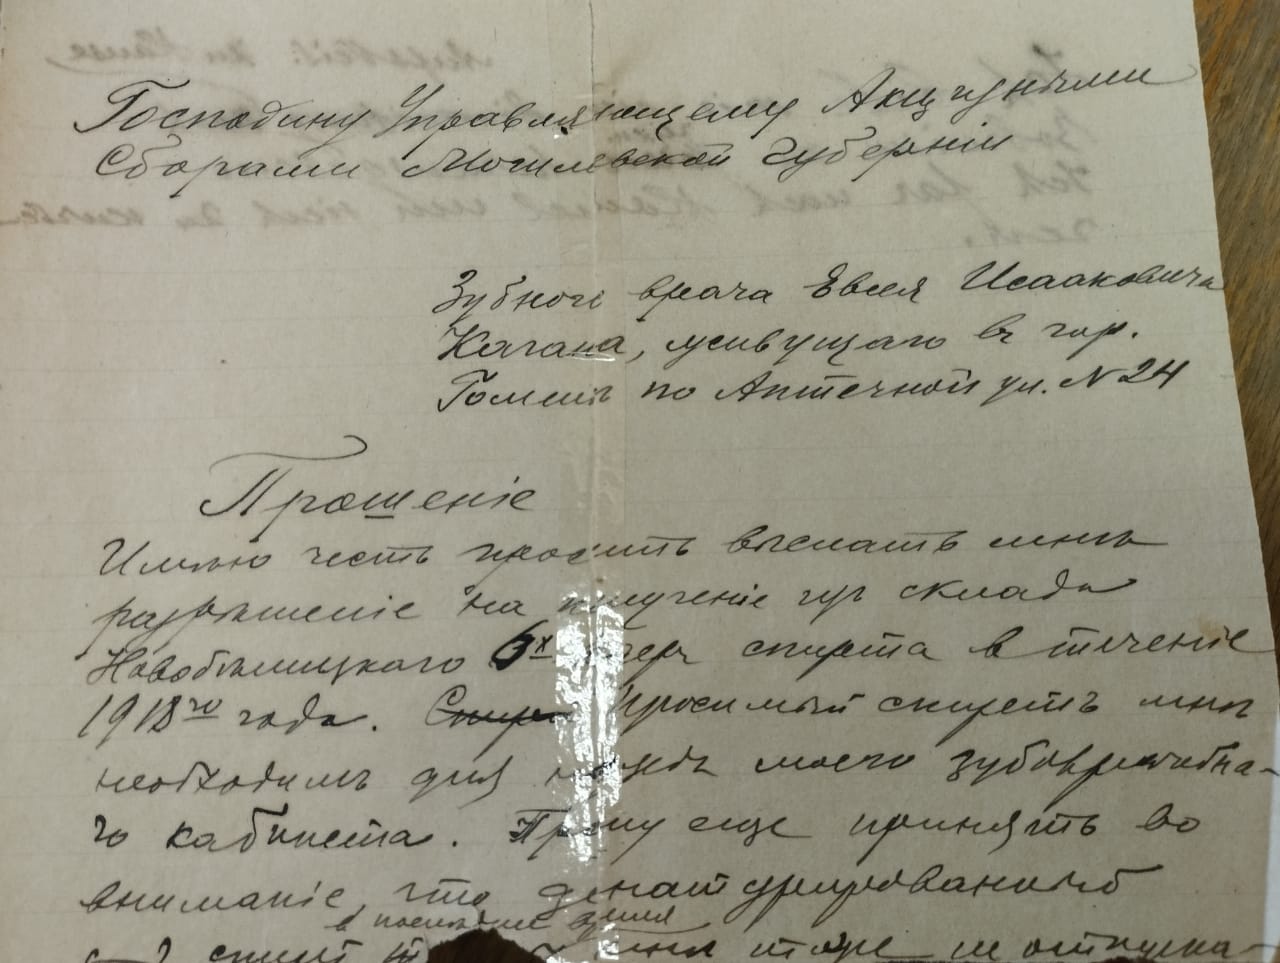 Господину Управляющему Акцизными
Сборами Могилевской губерніи
Зубного врача Евсея Исааковича
Кагана, живущаго въ гор.
Гомелѣ по Аптечной ул. № 24
Прошеніе
Имѣю честь просить выслать мнѣ
разрѣшеніе на полученіе изъ склада
Новобѣлицкаго 6х спирта в теченіе
1918го года. Просимый спиртъ мнѣ
необходимъ для нуждъ моего зубоврачебна-
го кабинета. Прошу еще принять во
вниманіе, что денатурированный
в последнее время
спирт тоже не отпуска-